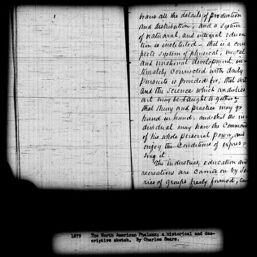 trans all the details of production
and distribution; and a system
of natural, and integral educa-
tion is instituted - that is a com-
plete system of physical, mental
and unitional development, in-
timately connected with daily
pursuits is provided for, that art
and the science which underlies
art may be taught together,
that theory and practice may go
hand in hand, and that the in-
dividual may have the command
of his whole personal power, and
enjoy the conditions of expres-
sing it.
The industries, education and
recreations are carried on by Se-
ries of groups freely formed,
1879 The North American Phalanx; a historical and des-
criptive sketch. By Charles Sears.